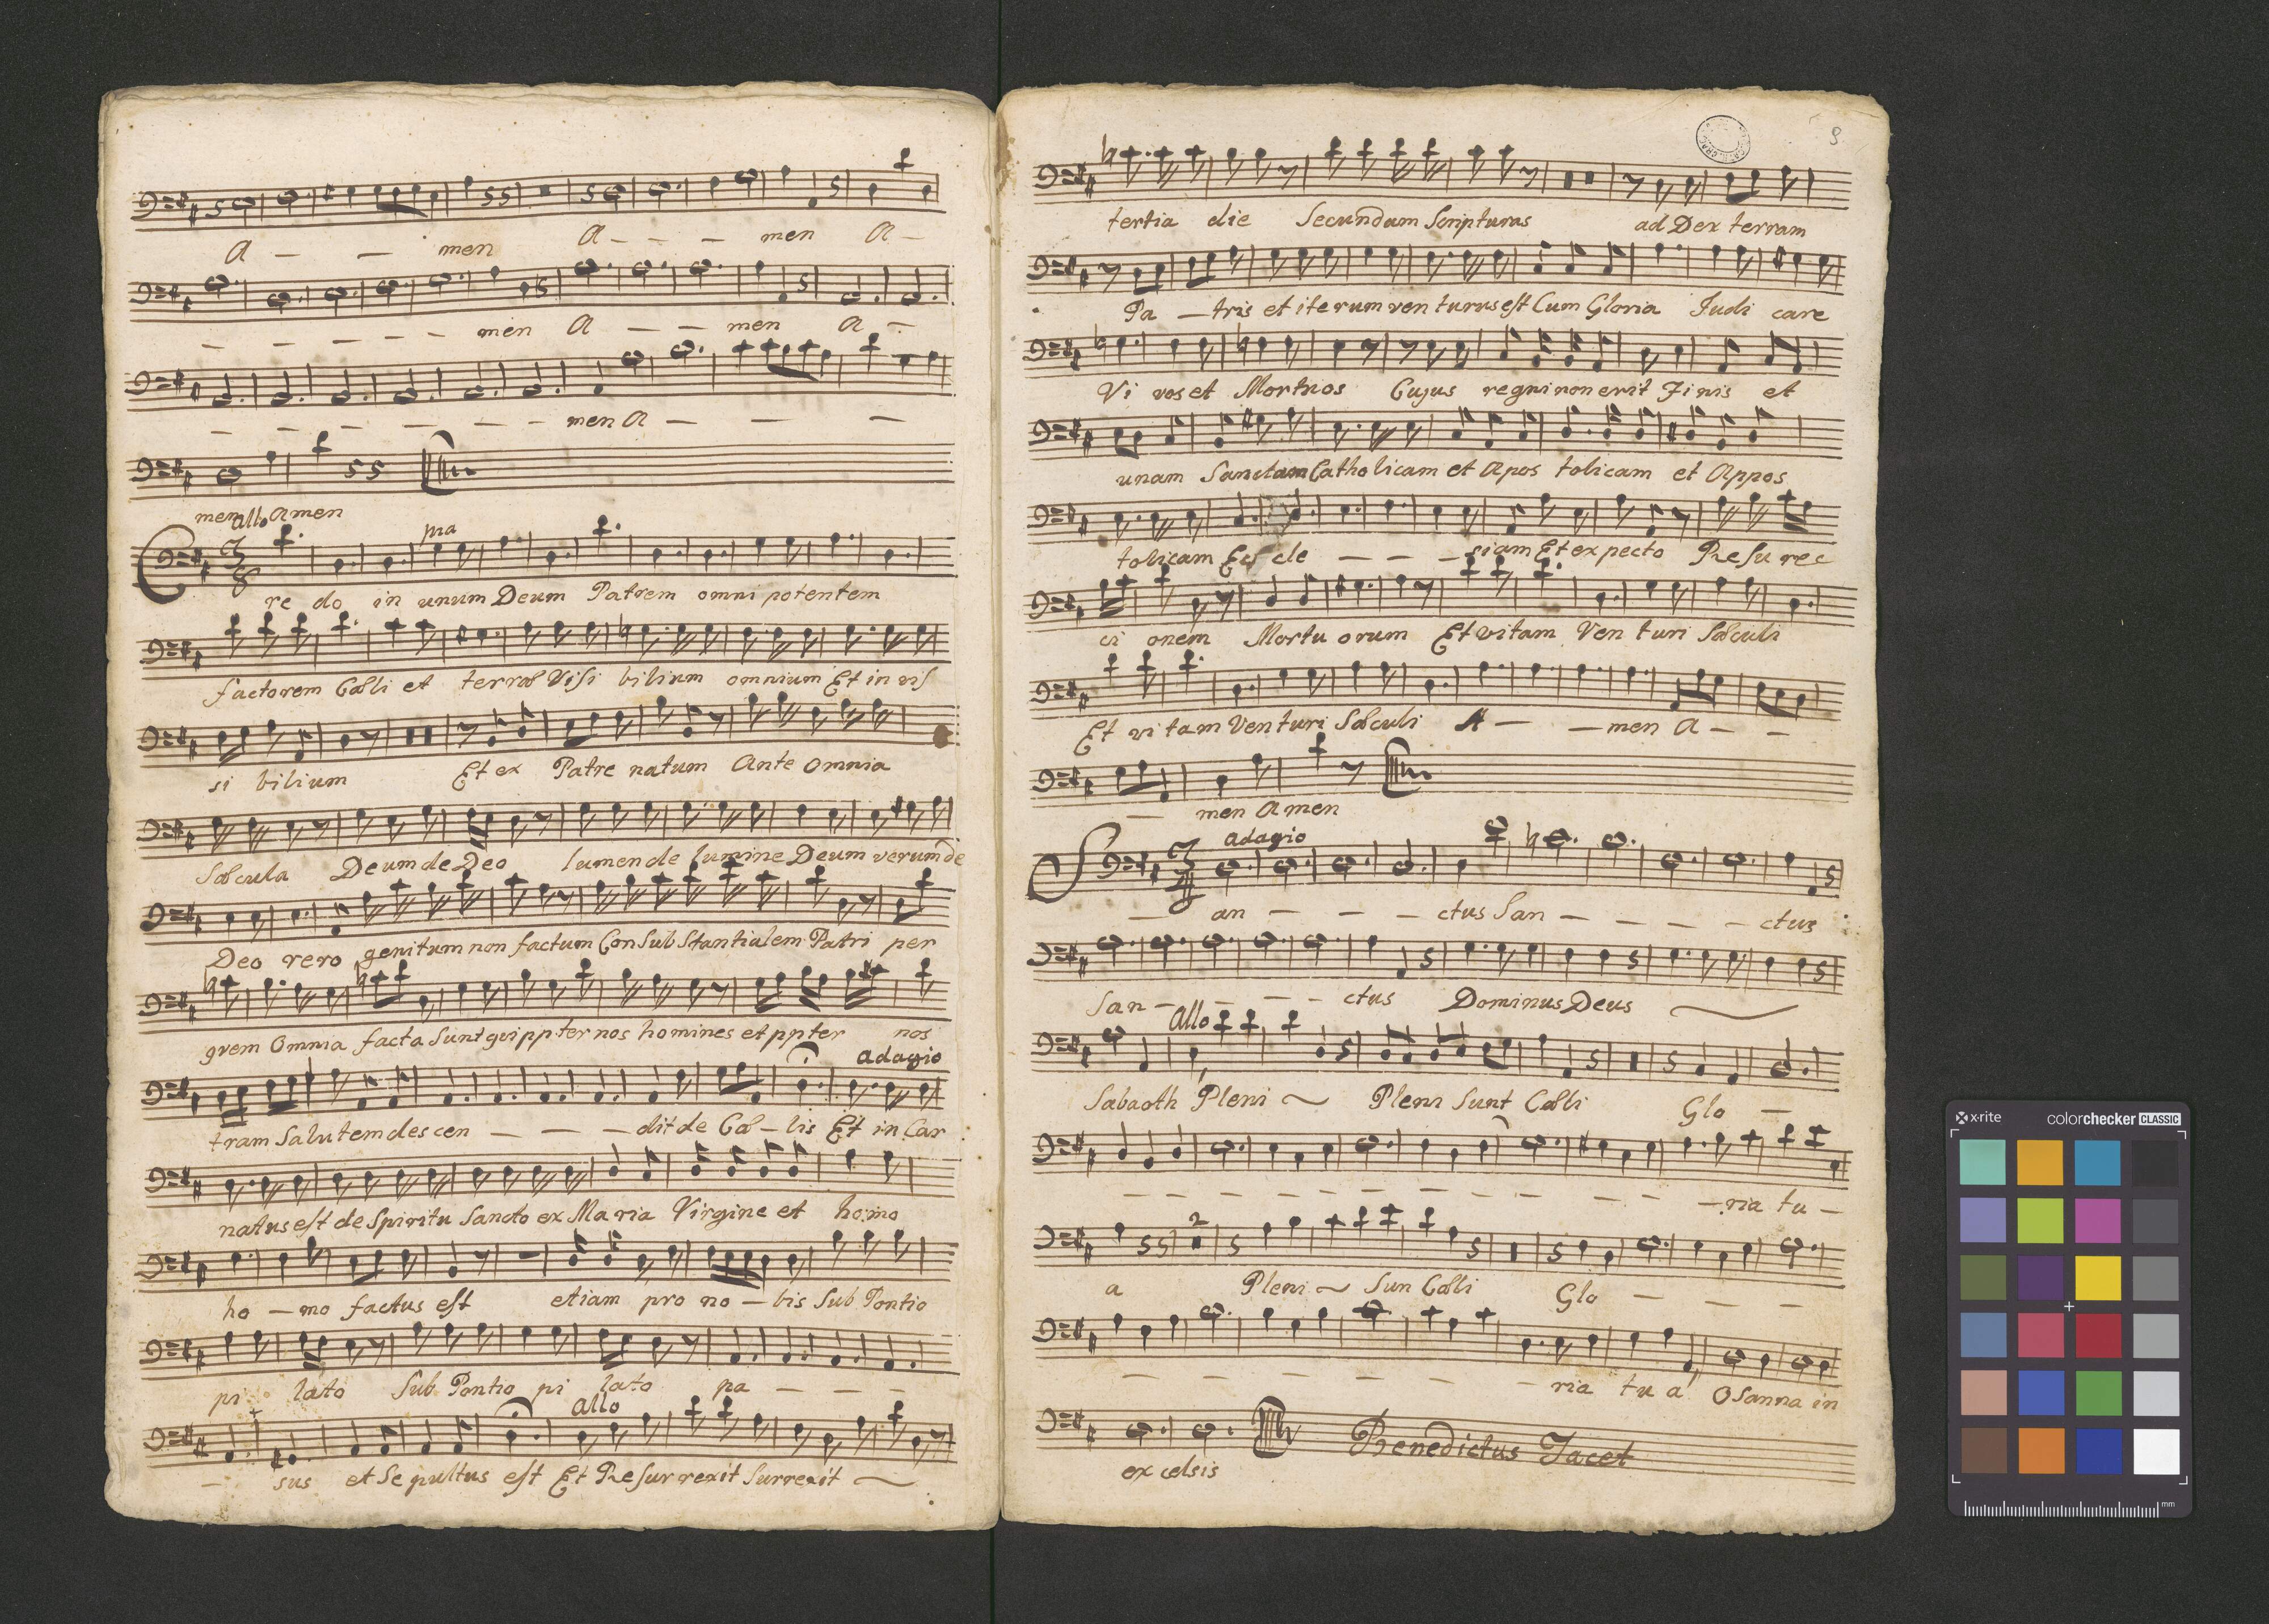 A — — men A — — — men A —
— — — — — men A — — men A —
— — — — — — men A — — —
men Amen
allo
pia
re do in unum Deum Patrem omni potentem
factorem Cœli et terræ Visi bilium omnium Et in vis
si bilium Et ex Patre natum Ante omnia
Sæcula Deum de Deo lumen de lumine Deum verum de
Deo vero genitum non factum Con Sub Stantialem Patri per
quem Omnia facta Sunt qui ppter nos homines et ppter nos
adagio
tram Salutem des cen — — — dit de Cœ — lis Et in Car
natus est de Spiritu Sancto ex Maria Virgine et homo
ho — mo factus est etiam pro no — bis Sub Pontio
pi lato Sub Pontio pi lato pa — — —
allo
— sus et Se pultus est Et Resurrexit Surrexit
8
tertia die Secundum Scripturas ad Dex terram
Pa — tris et iterum ven turus est Cum Gloria Judi care
Vi vos et Mortuos Cujus regni non erit Finis et
unam Sanctam Catholicam et Apos tolicam et Appos
tolicam Ec cle — — — siam Et expecto Resu rec
ci onem Mortu orum Et vitam Ven turi Sæculi
Et vi tam Venturi Sæculi A — — men A — —
— men Amen
adagio
— an — — — ctus San — — — — ctus
San — — — — ctus Dominus Deus
allo
Sabaoth Pleni Pleni Sunt Cœli Glo —
— — — — — — — — — — ria tu —
2
a Pleni Sun Cœli Glo — — —
— — — — — — — ria tu a O Sanna in
ex celsis
Benedictus Tacet
x-rite colorchecker CLASSIC
mm